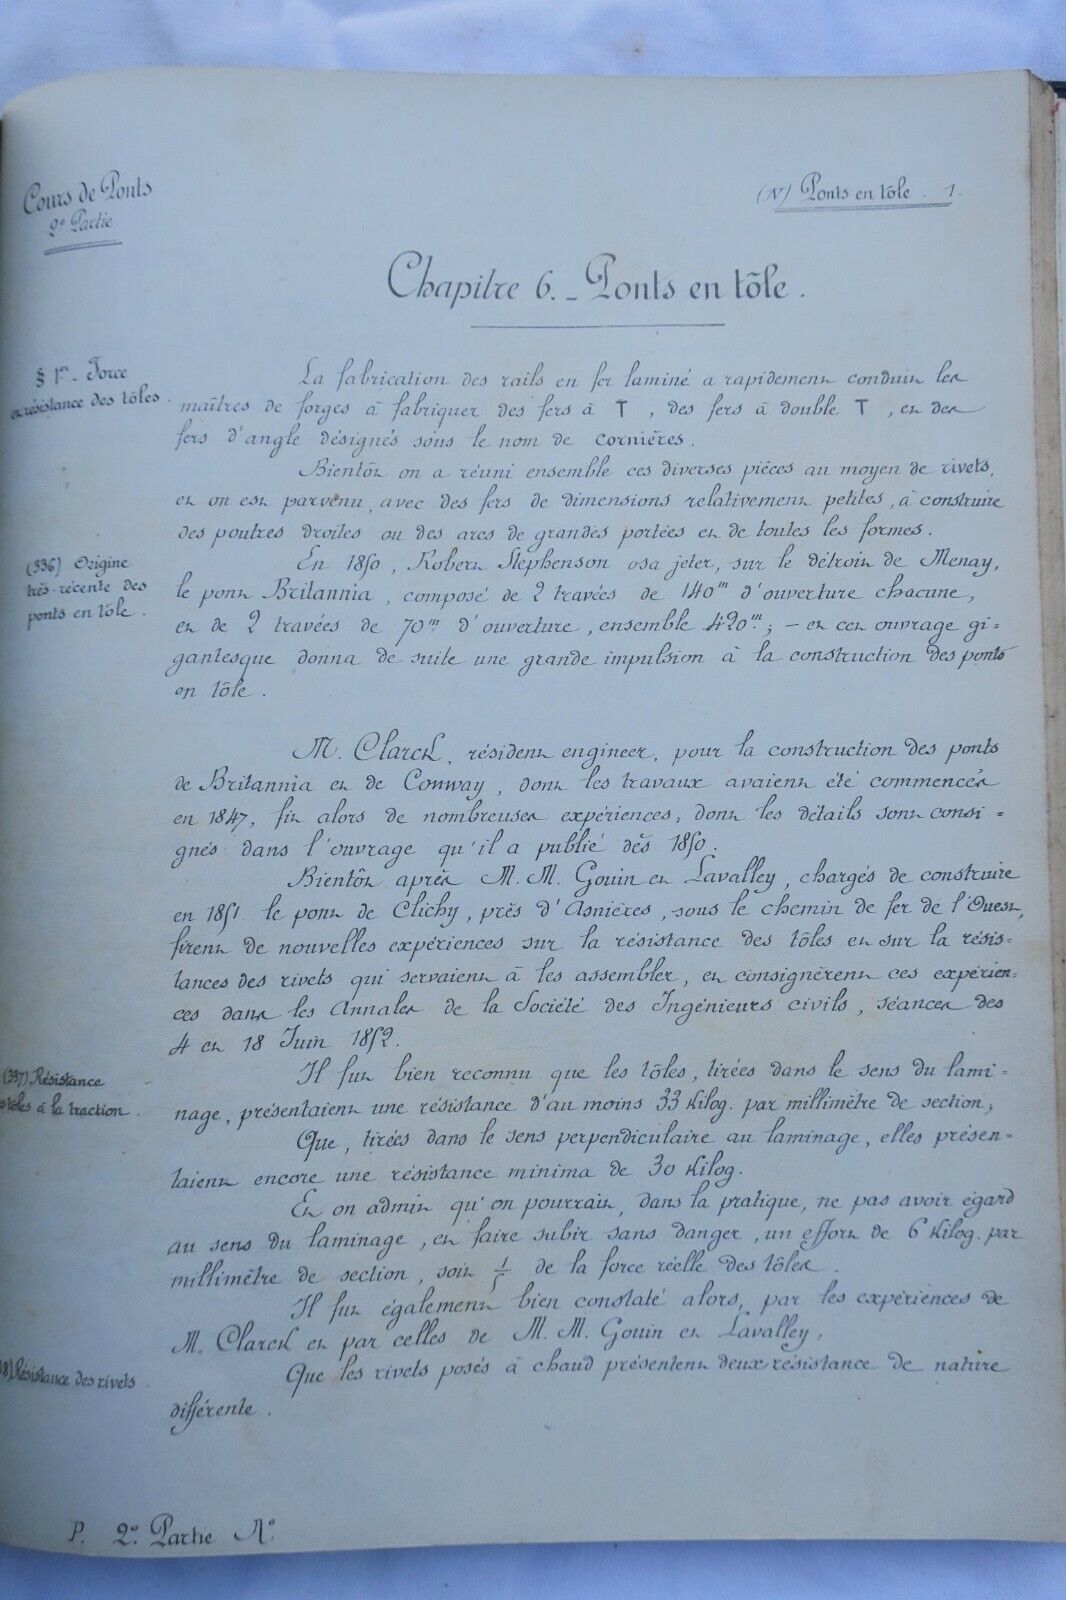 Cours de Ponts
2e Partie
(N) Ponts en tôle . 1.
Chapitre 6. _ Ponts en tôle .
§ 1er _ Force
et résistance des tôles .
La fabrication des rails en fer laminé a rapidement conduit les
maîtres de forges à fabriquer des fers à T , des fers à double T , et des
fers d'angle désignés sous le nom de cornières .
Bientôt on a réuni ensemble ces diverses pièces au moyen de rivets,
et on est parvenu, avec des fers de dimensions relativement petites, à construire
des poutres droites ou des arcs de grandes portées et de toutes les formes .
(336) Origine
très-récente des
ponts en tôle .
En 1850 , Robert Stephenson osa jeter, sur le détroit de Menay,
le pont Britannia , composé de 2 travées de 140m d'ouverture chacune,
et de 2 travées de 70m d'ouverture, ensemble 420m; — et cet ouvrage gi=
gantesque donna de suite une grande impulsion à la construction des ponts
en tôle .
M. Clarck, résident engineer, pour la construction des ponts
de Britannia et de Conway, dont les travaux avaient été commencés
en 1847, fit alors de nombreuses expériences, dont les détails sont consi=
gnés dans l'ouvrage qu'il a publié dès 1850.
Bientôt après M. M. Gouin et Lavalley, chargés de construire
en 1851 le pont de Clichy, près d'Asnières, sous le chemin de fer de l'Ouest,
firent de nouvelles expériences sur la résistance des tôles et sur la résis=
tances des rivets qui servaient à les assembler, et consignèrent ces expérien=
ces dans les Annales de la Société des Ingénieurs civils, séances des
4 et 18 Juin 1852.
(337) Résistance
tôles à la traction .
Il fut bien reconnu que les tôles, tirées dans le sens du lami=
nage, présentaient une résistance d'au moins 33 Kilog. par millimètre de section;
Que, tirées dans le sens perpendiculaire au laminage, elles présen=
taient encore une résistance minima de 30 Kilog.
Et on admit qu'on pourrait, dans la pratique, ne pas avoir égard
au sens du laminage, et faire subir sans danger, un effort de 6 Kilog. par
millimètre de section, soit 1/5 de la force réelle des tôles .
Il fut également bien constaté alors, par les expériences de
M. Clarck et par celles de M. M. Gouin et Lavalley,
8) Résistance des rivets .
Que les rivets posés à chaud présentent deux résistance de nature
différente .
P. 2e Partie No